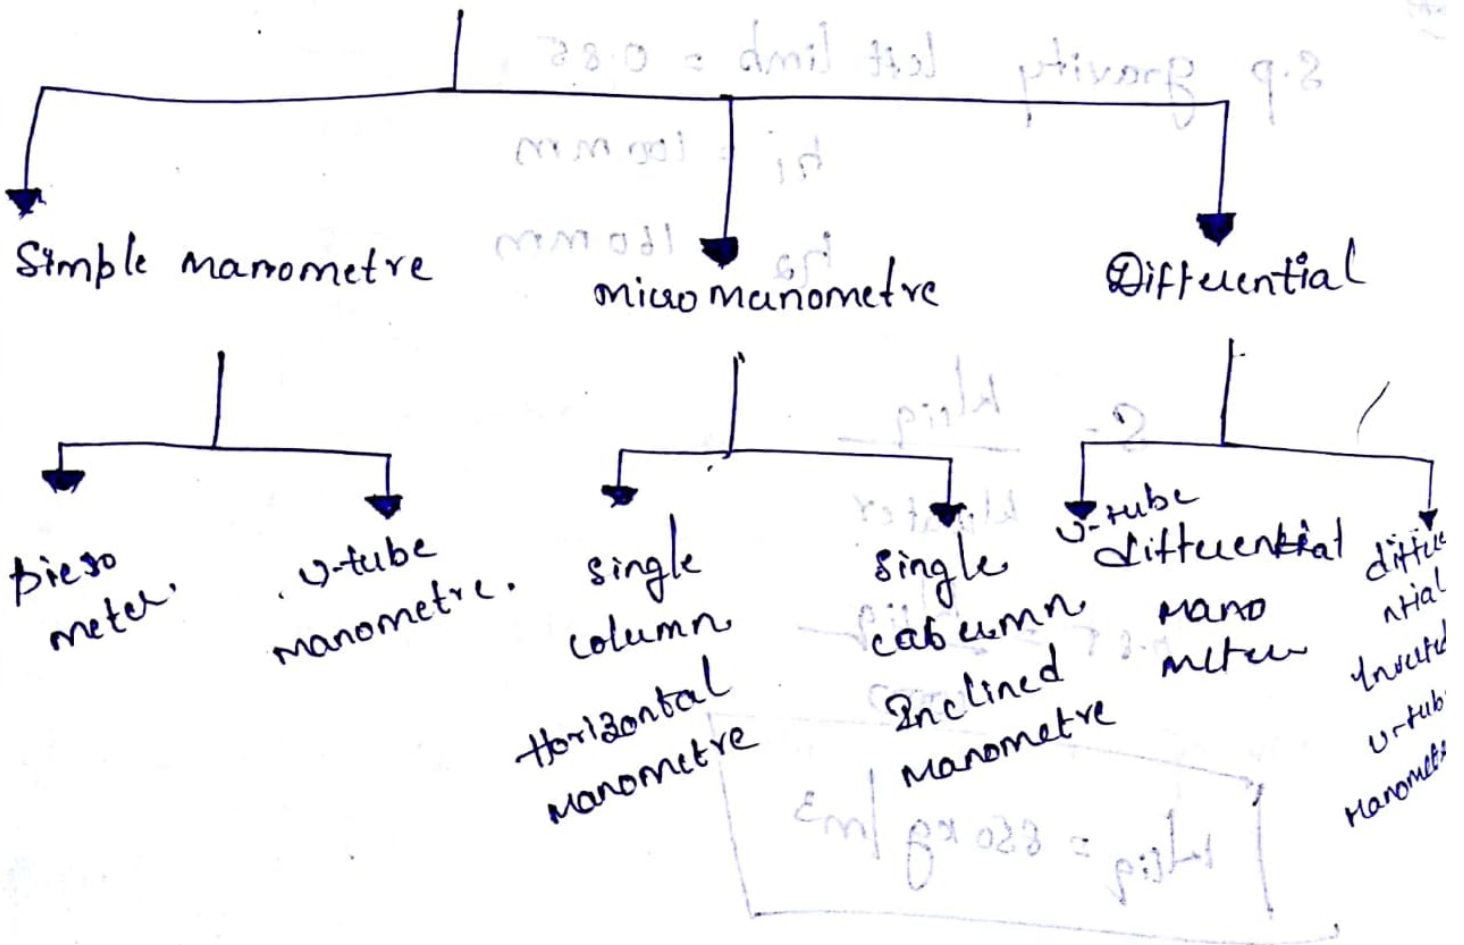 Simple manometre
micro manometre
Differential
pieso
meter.
U-tube
manometre.
single
column
Horizontal
manometre
single
column
Inclined
manometre
U-tube
differential
mano
meter
differe
ntial
Inverted
U-tub
Manomet